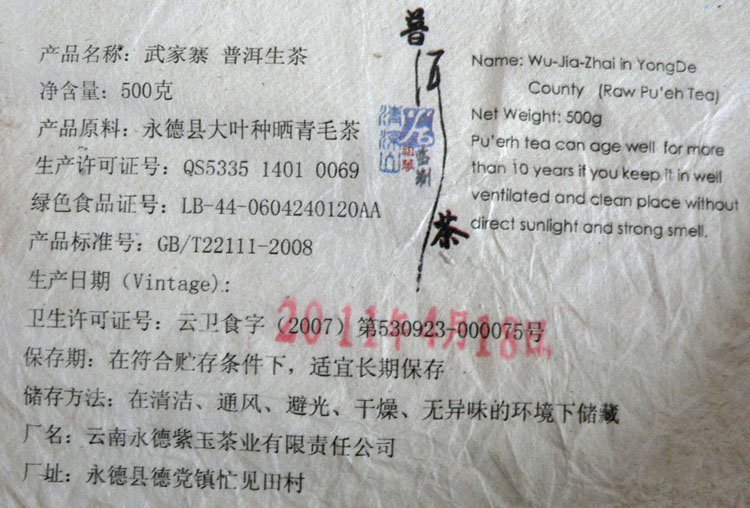 产品名称：武家寨 普洱生茶
净含量：500克
产品原料：永德县大叶种晒青毛茶
生产许可证号：QS5335 1401 0069
绿色食品证号：LB-44-0604240120AA
产品标准号：GB/T22111-2008
生产日期（Vintage）：
2011年4月18日
卫生许可证号：云卫食字（2007）第530923-000075号
保存期：在符合贮存条件下，适宜长期保存
储存方法：在清洁、通风、避光、干燥、无异味的环境下储藏
厂名：云南永德紫玉茶业有限责任公司
厂址：永德县德党镇忙见田村
普洱茶
Name: Wu-Jia-Zhai in YongDe
County (Raw Pu'eh Tea)
Net Weight: 500g
Pu'erh tea can age well for more
than 10 years if you keep it in well
ventilated and clean place without
direct sunlight and strong smell.